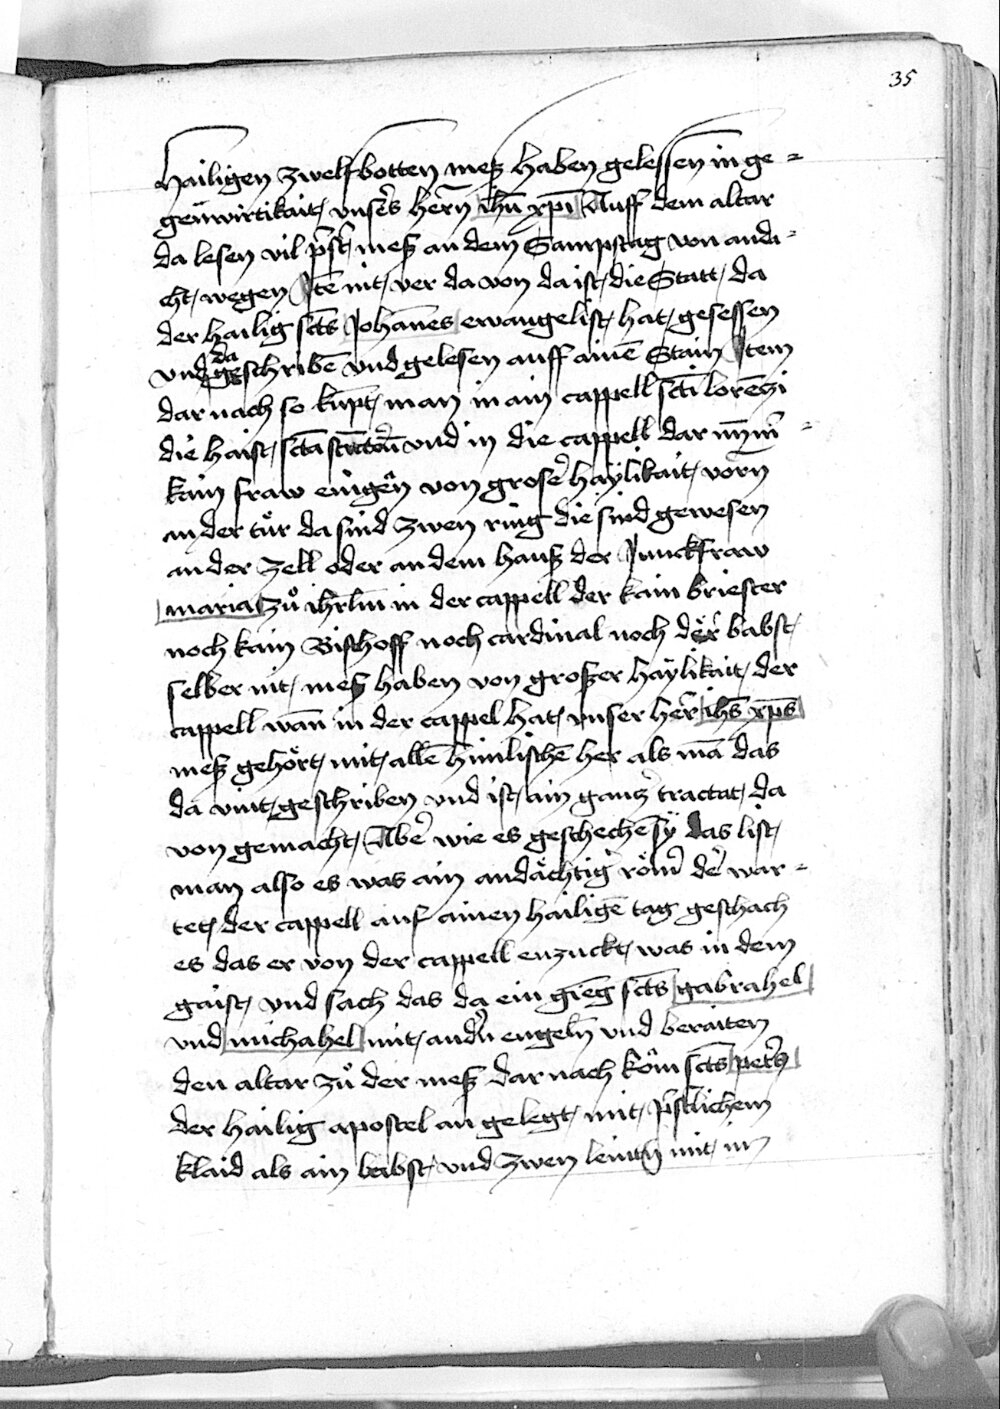 35
Hailigen zwelfbotten mess haben gelessen in ge-
genwirtikait unsers hern ihu xpi Auff dem altar
da lesen vil pristr mess an dem Sampstag von anda-
cht wegen Ite nit ver da von da ist die Statt da
der hailig scts Johanes ewangelist hat gesessen
und da geschribe und gelesen auff aine Stain Item
dar nach so kupt man in ain cappell scti lorenczi
die haist scta sctor und in die cappell dar
kain fraw eingen von groser haylikait vorn
an der tür da sind zwen ring die sind gewesen
an der zell oder an dem hauss der Junckfraw
maria zů ihrlm in der cappell der kain briester
noch kain Bischoff noch cardinal noch der babst
selber nit mess haben von grosser haylikait der
cappell wan in der cappel hat unser her ihs xps
mess gehört mit alle himlische her als ma das
da vint geschriben und ist ain gancz tractat da
von gemacht Aber wie es gescheche sy das list
man also es was ain andächtiger römer der war-
tet der cappell auf ainen hailige tag geschach
es das er von der cappell enzuckt was in dem
gaist und sach das da ein gieng scts gabrahel
und michahel mit andern engeln und beraiten
den altar zů der mess dar nach köm scts peters
der hailig apostel an gelegt mit pristlichem
klaid als ain babst und zwen mit im